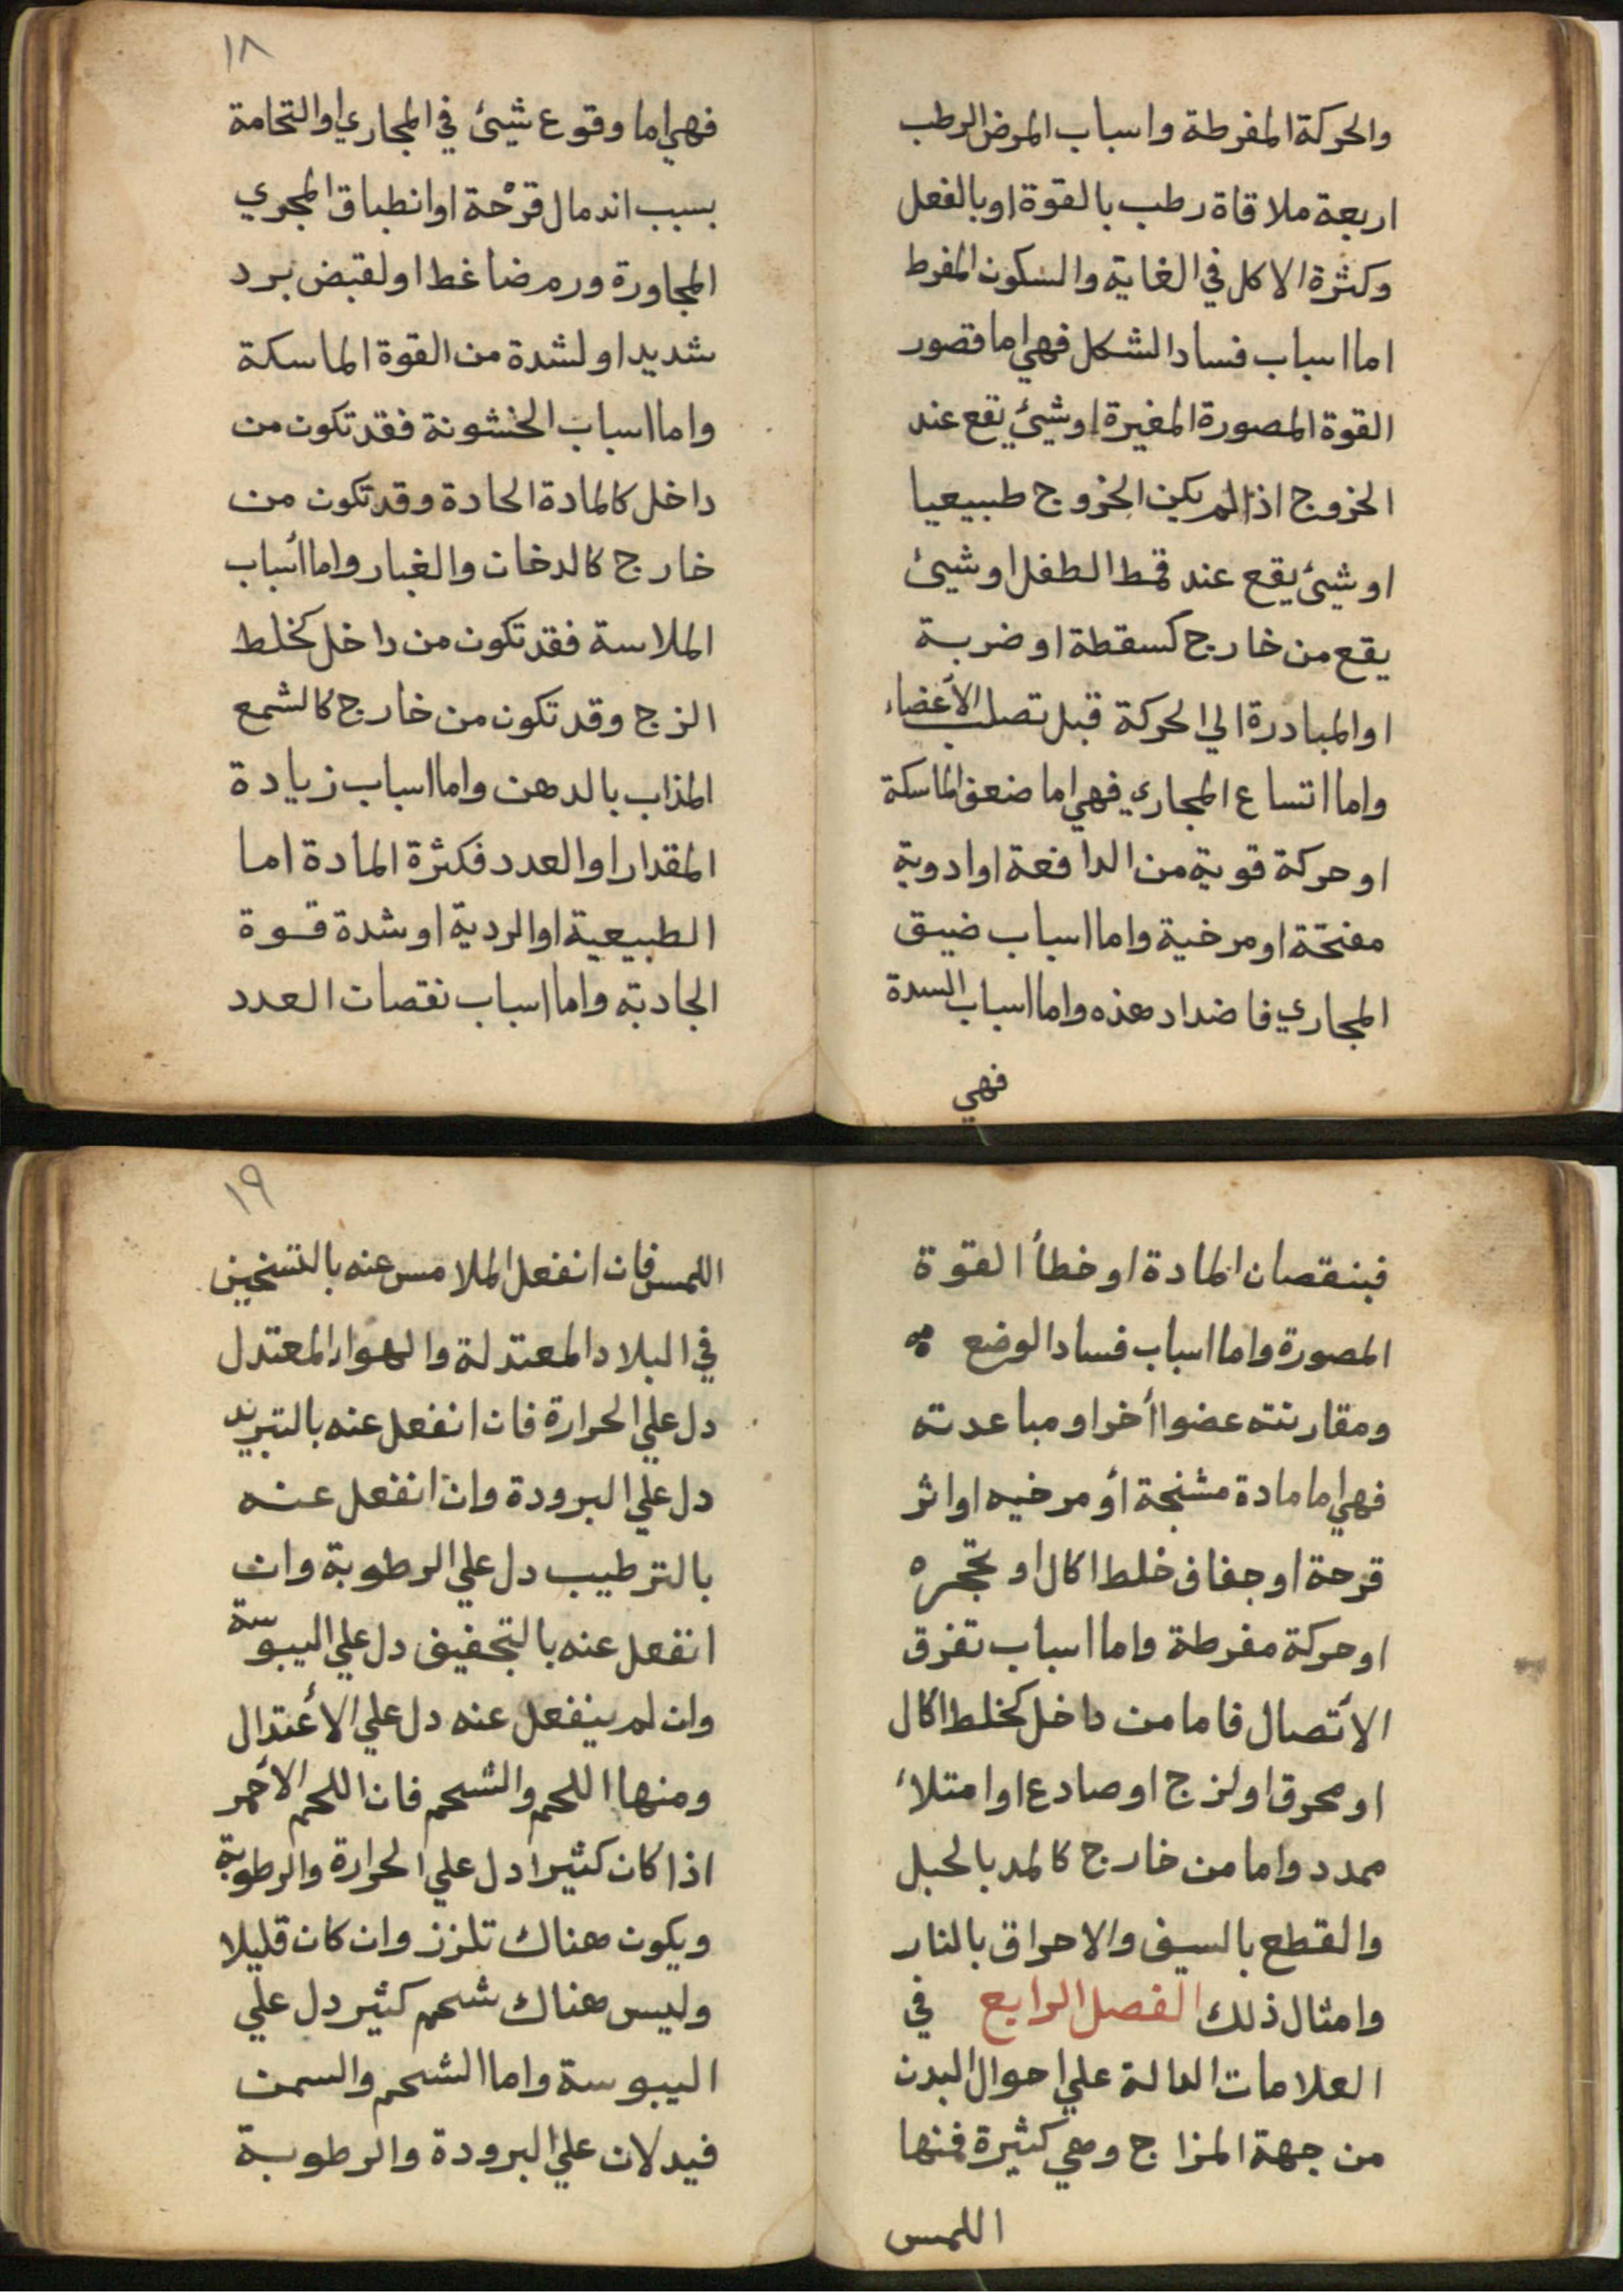 والحركة المفرطة واسباب المرض الرطب
اربعة ملاقاة رطب بالقوة او بالفعل
وكثرة الاكل في الغاية والسكون المفرط
اما اسباب فساد الشكل فهي اما قصور
القوة المصورة المغيرة او شيئ يقع عند
الخروج اذا لم يكن الخروج طبيعيا
او شيئ يقع عند قمط الطفل او شيئ
يقع من خارج كسقطة او ضربة
او المبادرة الي الحركة قبل تصلب الأعضاء
واما اتساع المجاري فهي اما ضعف الماسكة
او حركة قوية من الدافعة او ادوية
مفتحة او مرخية واما اسباب ضيق
المجاري فاضداد هذه واما اسباب السدة
فهي
١٨
فهي اما وقوع شيئ في المجاري او التحامة
بسبب اندمال قرْحة او انطباق المجري
المجاورة ورم ضاغط او لقبض برد
شديد او لشدة من القوة الماسكة
واما اسباب الخشونة فقد تكون من
داخل كالمادة الحادة وقد تكون من
خارج كالدخان والغبار واما أسباب
الملاسة فقد تكون من داخل كخلط
الزج وقد تكون من خارج كالشمع
المذاب بالدهن واما اسباب زيادة
المقدار او العدد فكثرة المادة اما
الطبيعية او الردية او شدة قوة
الجادبة واما اسباب نقصان العدد
فبنقصان المادة او خطأ القوة
المصورة واما اسباب فساد الوضع
ومقارنته عضوا أخر او مباعدته
فهي اما مادة مشنجة أو مرخيه او اثر
قرحة او جفاف خلط اكال او تحجره
او حركة مفرطة واما اسباب تفرق
الأتصال فاما من داخل كخلط اكال
او محرق او لزج او صادع او امتلاء
ممدد واما من خارج كالمد بالحبل
والقطع بالسيف والاحراق بالنار
وامثال ذلك الفصل الرابع في
العلامات الدالة علي احوال البدن
من جهة المزاج وهي كثيرة فمنها
اللمس
١٩
اللمس فان انفعل الملامس عنه بالتسخين
في البلاد المعتدلة والهواء المعتدل
دل علي الحرارة فان انفعل عنه بالتبريد
دل علي البرودة وان انفعل عنه
بالترطيب دل علي الرطوبة وان
انفعل عنه بالتجفيف دل علي اليبوسة
وان لم ينفعل عنه دل علي الأعتدال
ومنها اللحم والشحم فان اللحم الأحمر
اذا كان كثيرا دل علي الحرارة والرطوبة
ويكون هناك تلزز وان كان قليلا
وليس هناك شحم كثير دل علي
اليبوسة واما الشحم والسمن
فيدلان علي البرودة والرطوبة